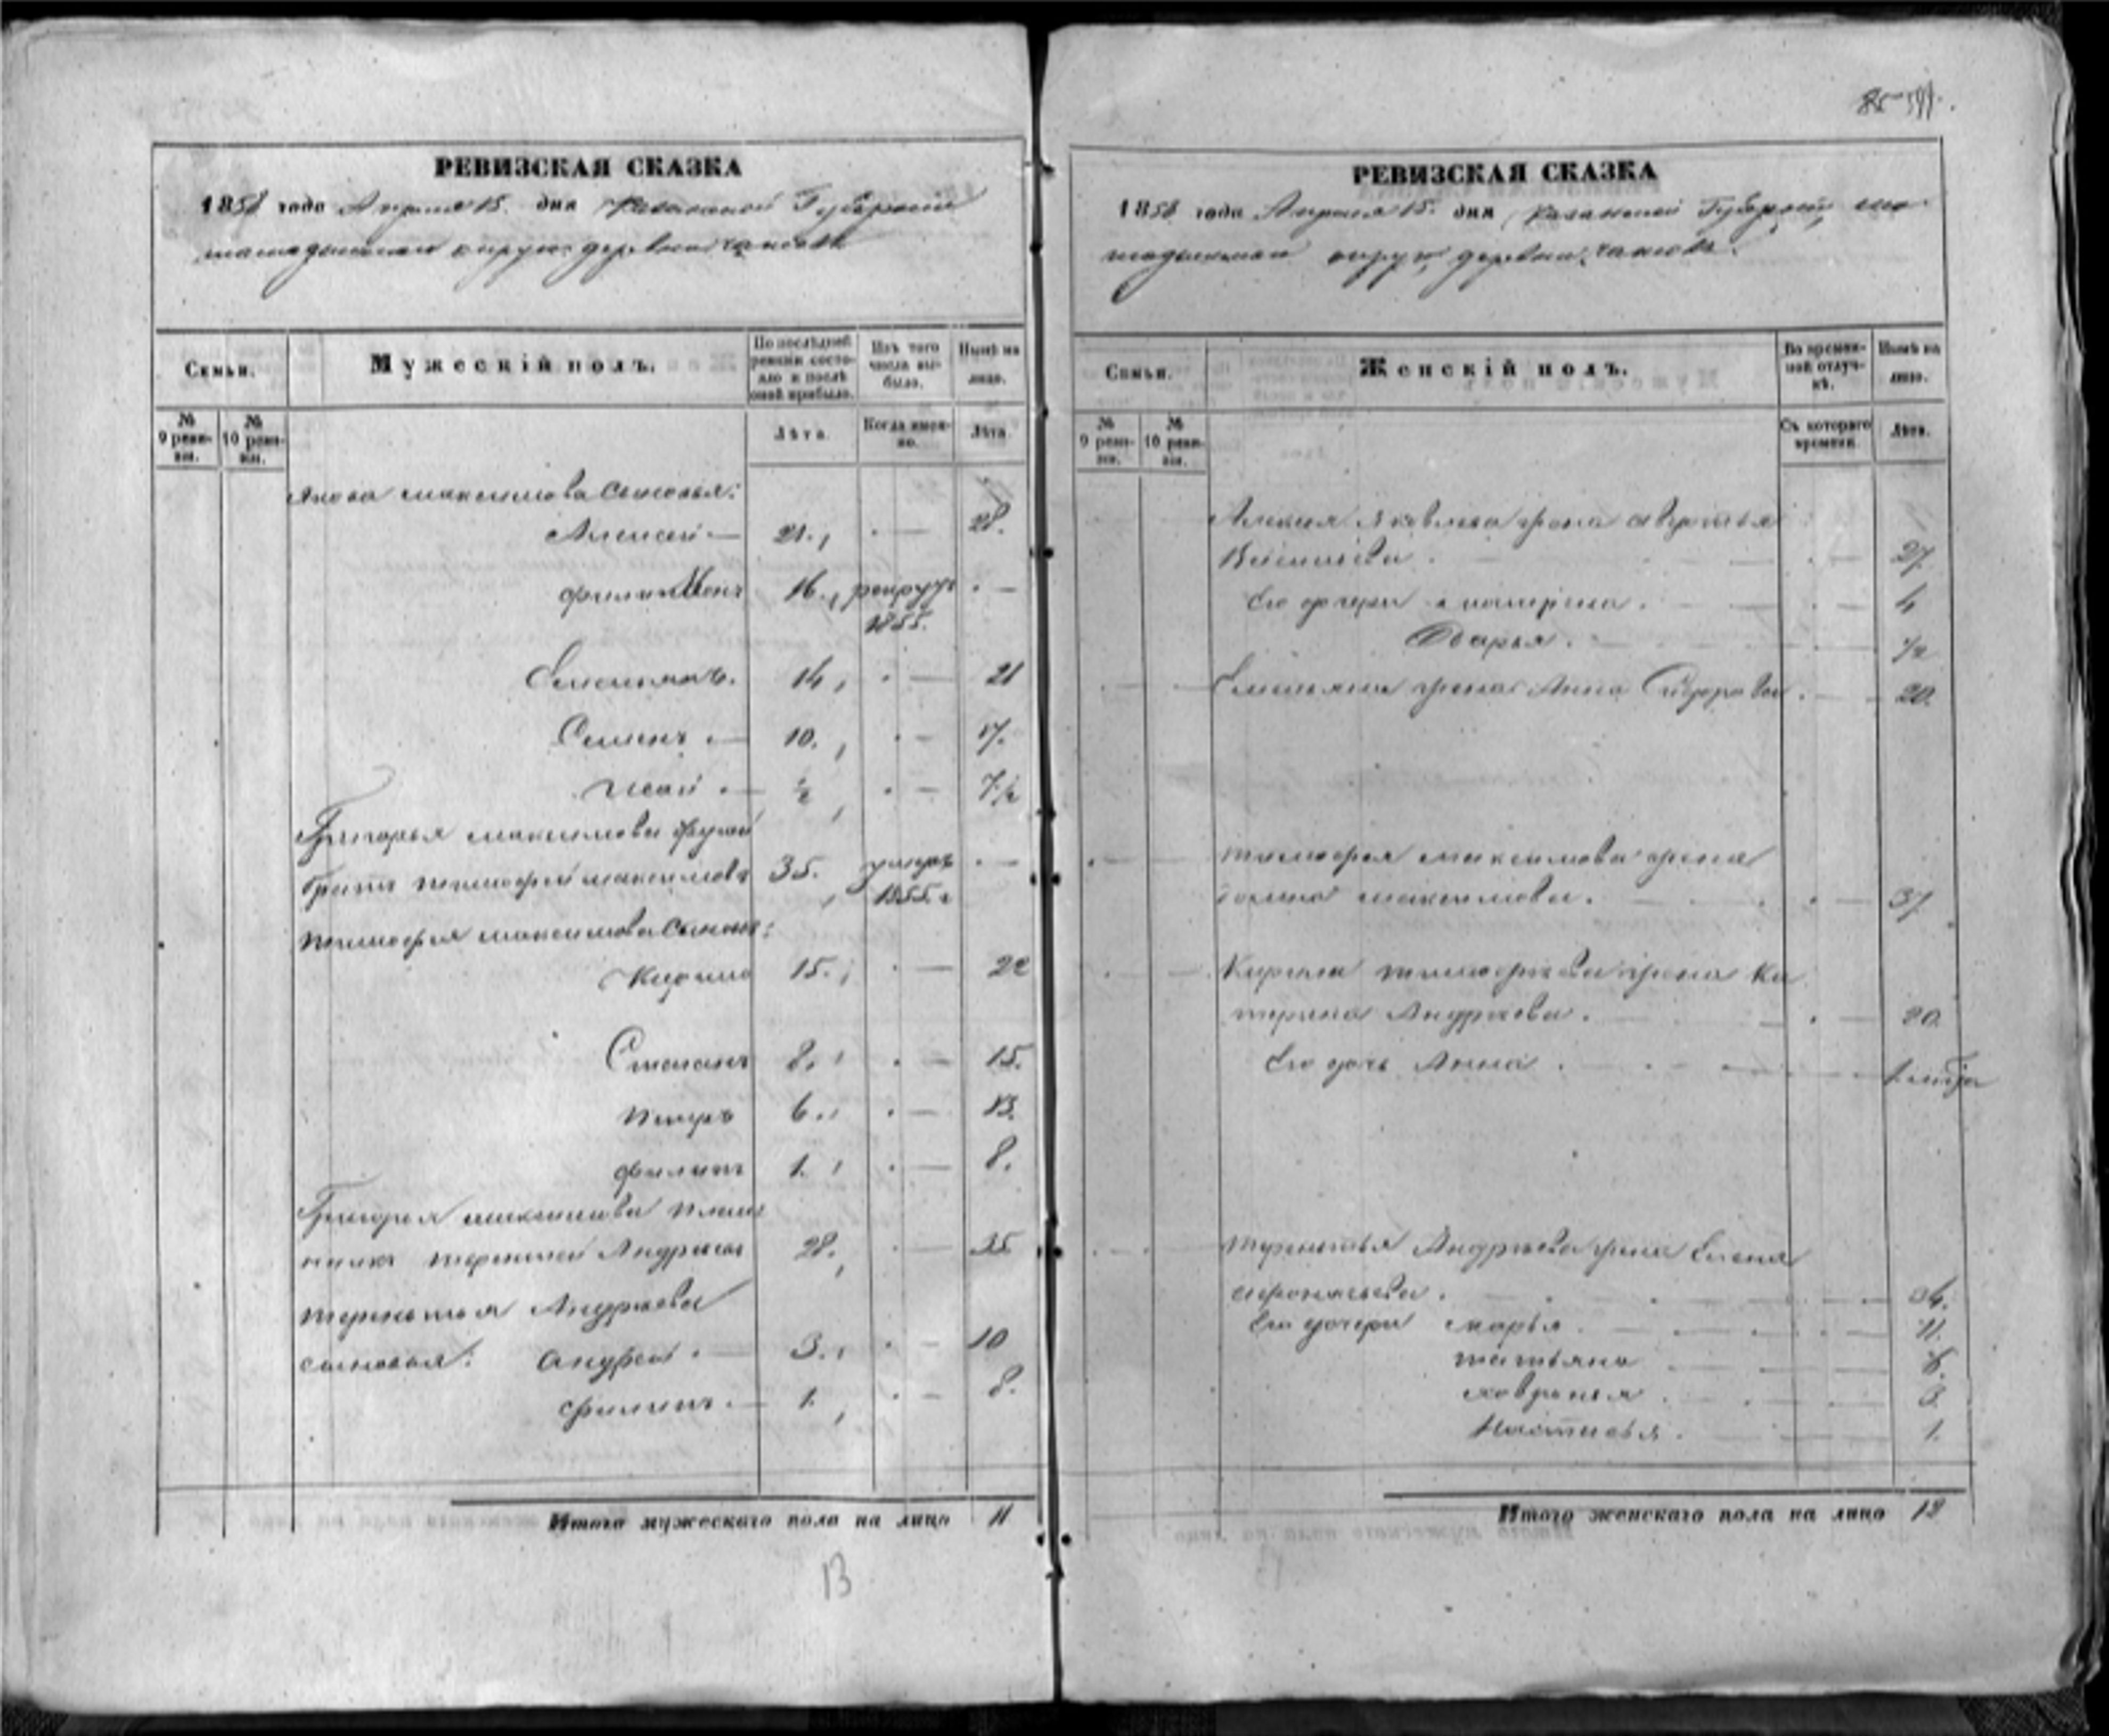 85
РЕВИЗСКАЯ СКАЗКА
1858 года Апреля 15. дня Казанской Губернии
округи деревни
Семьи.
Мужескій полъ.
По послѣдней ревизіи состояло и послѣ оной прибыло.
Изъ того числа выбыло.
Нынѣ на лицо.
№ 9 ревизіи.
№ 10 ревизіи.
Лѣта.
Когда именно.
Лѣта.
Якова максимова сыновья:
Алексей — 21., · — 28.
филимонъ 16., рекрутъ · —
1855.
Емельянъ. 14, · — 21
Семенъ . — 10., · — 17.
Исай . — ½, · — 7½
Григорья максимова другой
братъ тимофей максимовъ 35., умеръ · —
1855. г
тимофея максимова сыновья:
Кирило 15., · — 22
Степанъ 8., · — 15.
петръ 6., · — 13.
филипъ 1., · — 8.
Григорья максимова племян
никъ терентей Андреевъ 28., · — 35
терентья Андреева
сыновья: Андрей . — 3., · — 10
филипъ . — 1., · — 8.
Итого мужескаго пола на лицо 11
13
РЕВИЗСКАЯ СКАЗКА
1858 года Апреля 15. дня Казанской Губернии,
округи деревни
Семьи.
Женскій полъ.
Во временной отлучкѣ.
Нынѣ на лицо.
№ 9 ревизіи.
№ 10 ревизіи.
Съ котораго времени.
Лѣта.
Алексея Яковлева жена
Васильева . — 27.
Его дочери катерина . — 4
Дарья . — ½
Емельяна жена Анна Сидорова . — 20.
тимофея максимова жена
максимова . — 37.
Кирила тимофеева жена Ка
терина Андреева . — 20.
Его дочь Анна .
терентья Андреева жена Елена
Афонасьева . — 34.
Его дочери марья . — 11.
татьяна — 6.
ховронья . — 3.
Настасья . — 1.
Итого женскаго пола на лицо 12